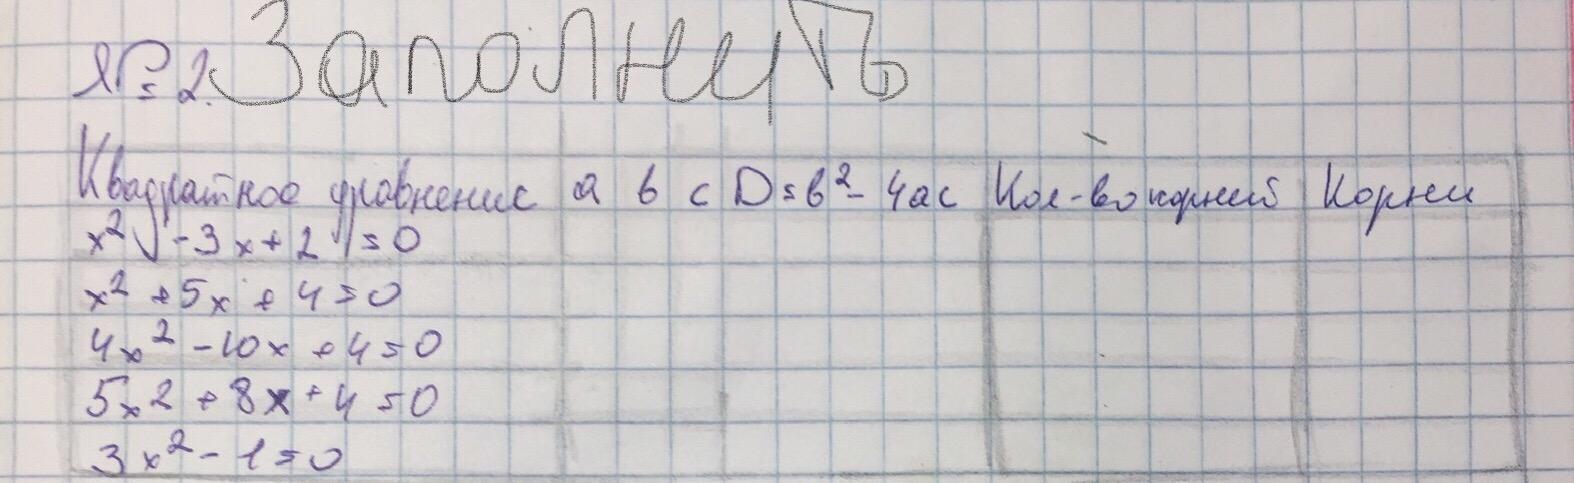 №2. Заполнить
Квадратное уравнение а в с D=в²-4ас Кол-во корней Корни
x² -3x+2=0
x²+5x+4=0
4x²-10x+4=0
5x2+8x+4=0
3x²-1=0